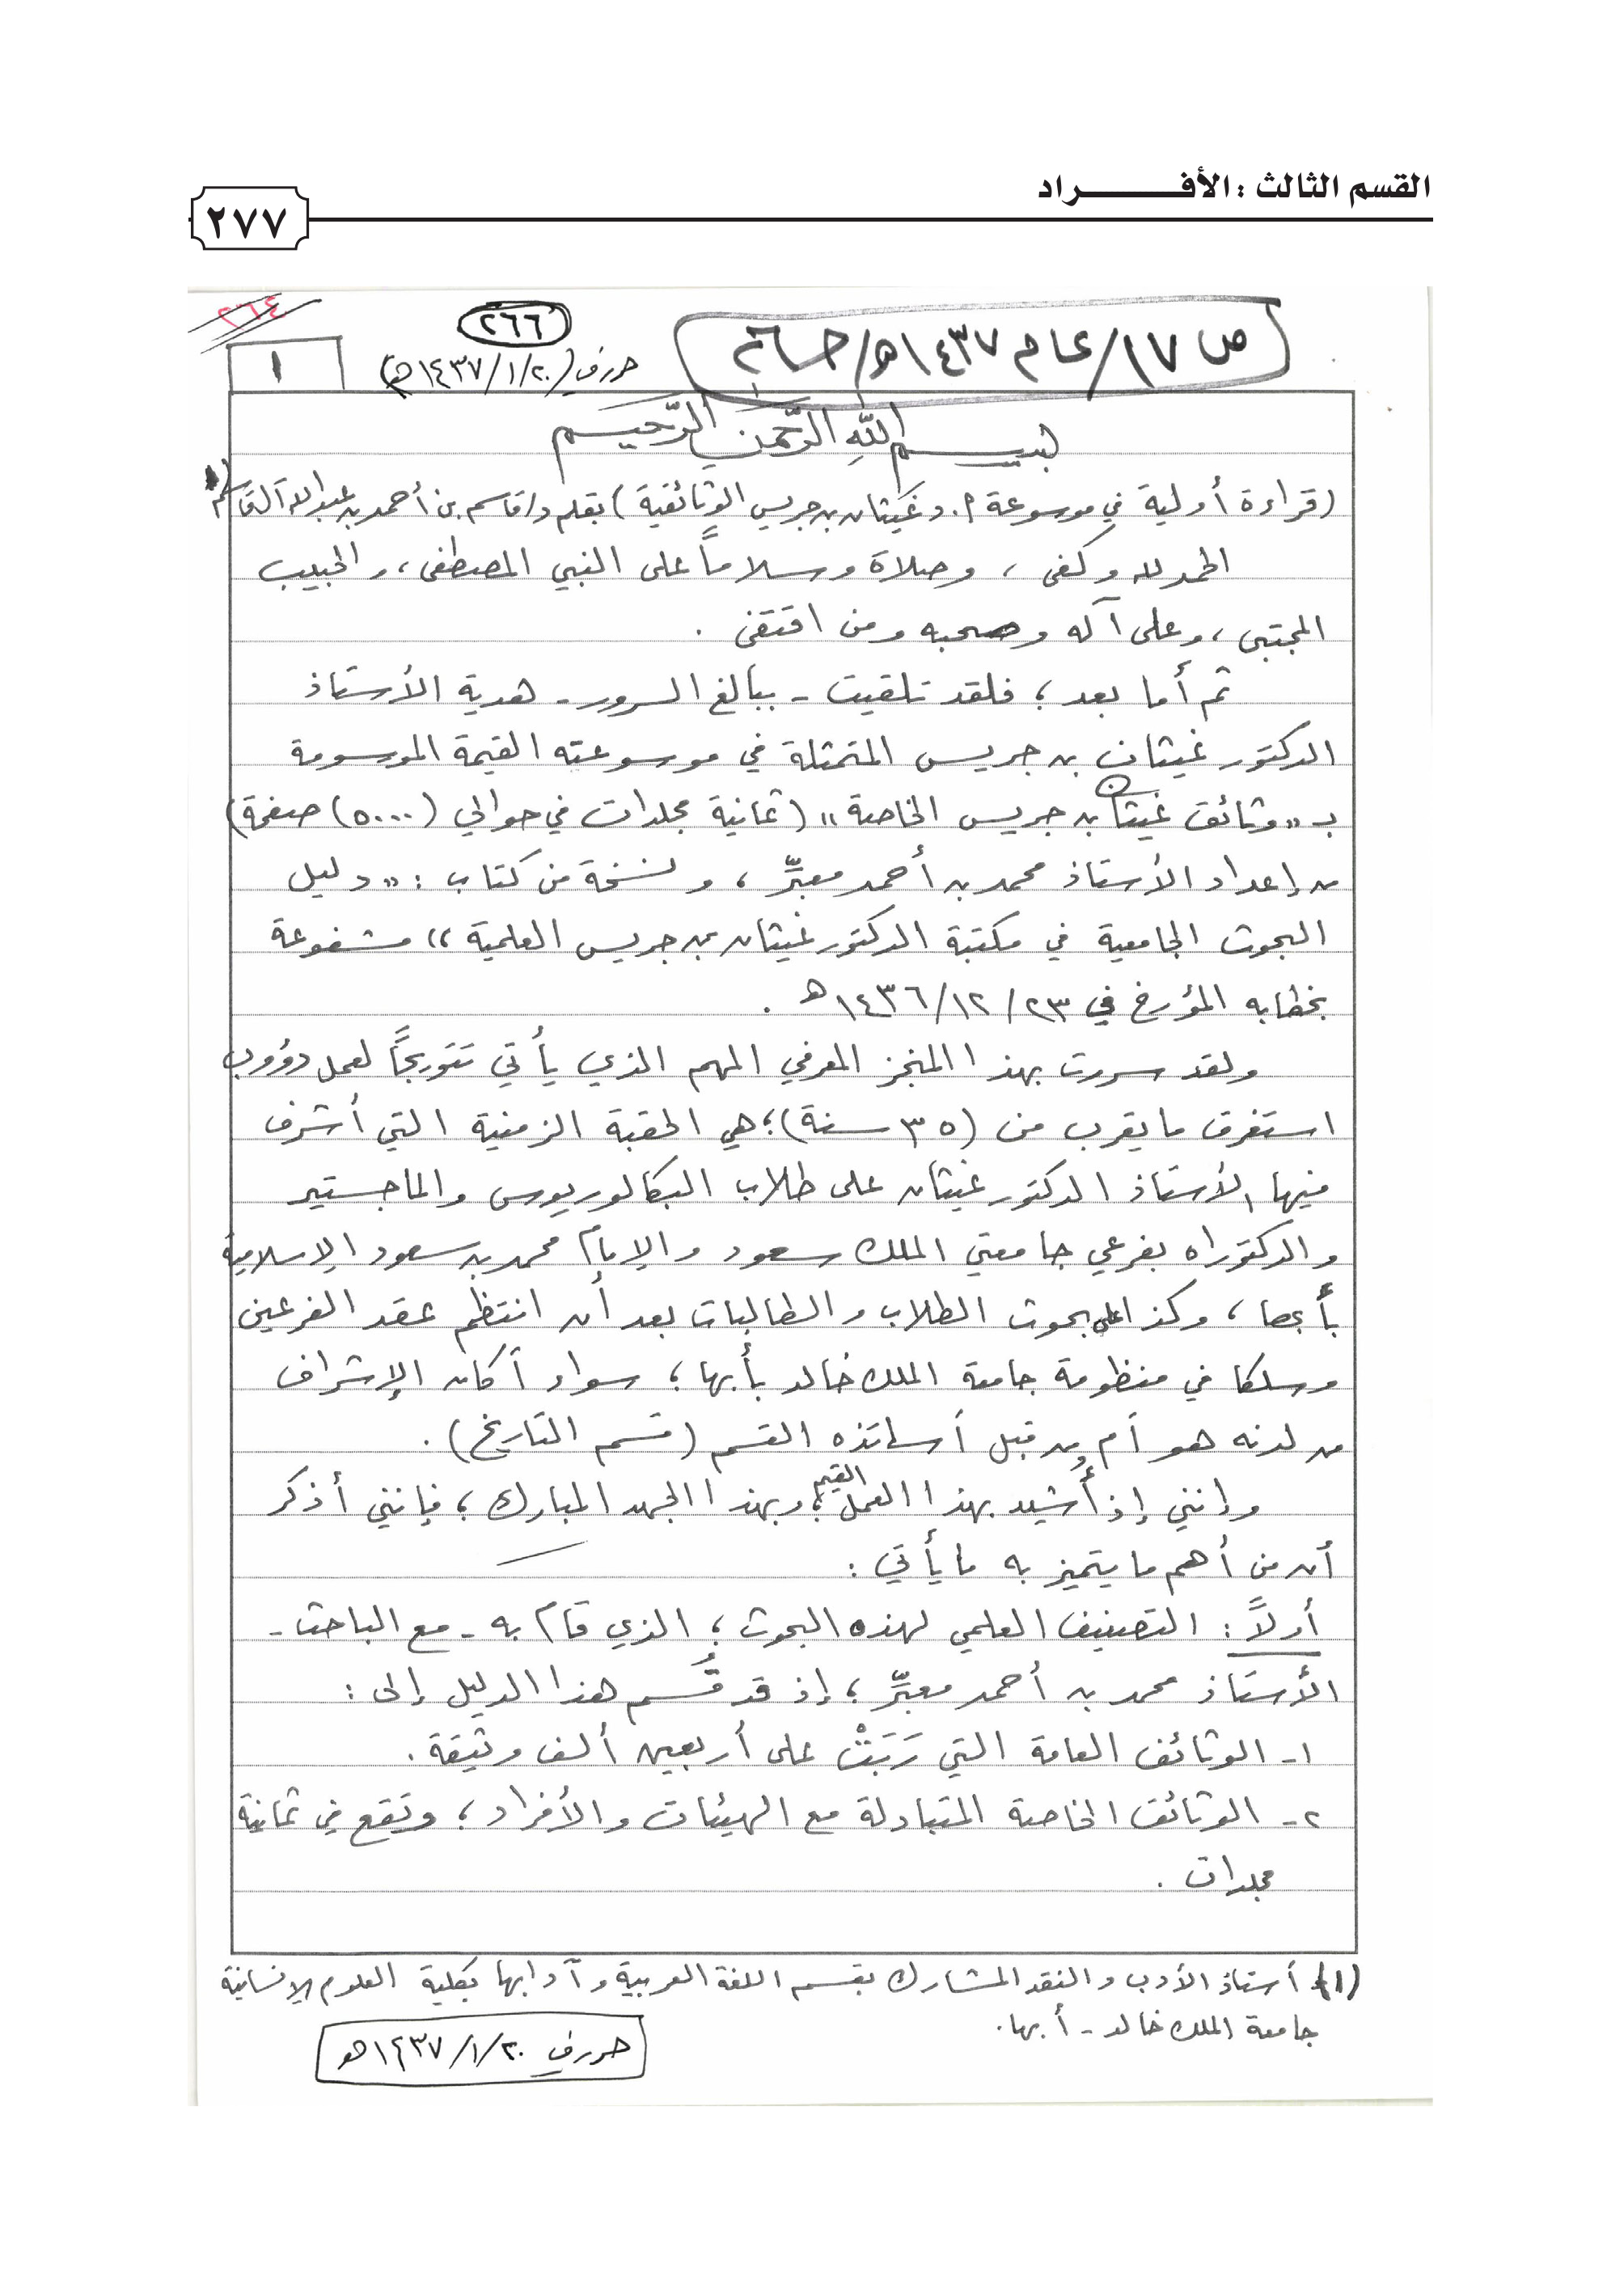 القسم الثالث : الأفـــــراد
٢٧٧
٢٦٤
٢٦٦
ص ١٧/عام ١٤٣٧هـ/
حرر في (١٤٣٧/١/٢٠هـ)
١
بسم الله الرحمن الرحيم
(قراءة أولية في موسوعة أ.د غيثان بن جريس الوثائقية) بقلم د/قاسم بن أحمد بن عبدالله آل قاسم
الحمد لله وكفى ، وصلاة وسلاماً على النبي المصطفى ، والحبيب
المجتبى ، وعلى آله وصحبه ومن اقتفى .
ثم أما بعد ؛ فلقد تلقيت - ببالغ السرور - هدية الأستاذ
الدكتور غيثان بن جريس المتمثلة في موسوعته القيمة الموسومة
بـ "وثائق غيثان بن جريس الخاصة" (ثمانية مجلدات في حوالي (٥٠٠٠) صفحة)
من إعداد الأستاذ محمد بن أحمد معبِّر ، ونسخة من كتاب : "دليل
البحوث الجامعية في مكتبة الدكتور غيثان بن جريس العلمية" مشفوعة
بخطابه المؤرخ في ١٤٣٦/١٢/٢٣هـ .
ولقد سررت بهذا المنجز المعرفي المهم الذي يأتي تتويجاً لعمل دؤوب
استغرق ما يقرب من (٣٥ سنة) ؛ هي الحقبة الزمنية التي أشرف
فيها الأستاذ الدكتور غيثان على طلاب البكالوريوس والماجستير
والدكتوراه بفرعي جامعتي الملك سعود والإمام محمد بن سعود الإسلامية
بأبها ، وكذا على بحوث الطلاب والطالبات بعد أن انتظم عقد الفرعين
وسلكا في منظومة جامعة الملك خالد بأبها ؛ سواء أكان الإشراف
من لدنه هو أم من قبل أساتذه القسم (قسم التاريخ) .
وإنني إذ أُشيد بهذا العمل القيم ؛ وبهذا الجهد المبارك ؛ فإنني أذكر
أن من أهم ما يتميز به ما يأتي :
أولاً : التصنيف العلمي لهذه البحوث ؛ الذي قام به - مع الباحث -
الأستاذ محمد بن أحمد معبِّر ؛ إذ قد قُسِّم هذا الدليل إلى :
١- الوثائق العامة التي رَبَتْ على أربعين ألف وثيقة .
٢- الوثائق الخاصة المتبادلة مع الهيئات والأفراد ؛ وتقع في ثمانية
مجلدات .
(١) أستاذ الأدب والنقد المشارك بقسم اللغة العربية وآدابها بكلية العلوم الإنسانية
جامعة الملك خالد - أبها .
حرر في ١٤٣٧/١/٢٠هـ